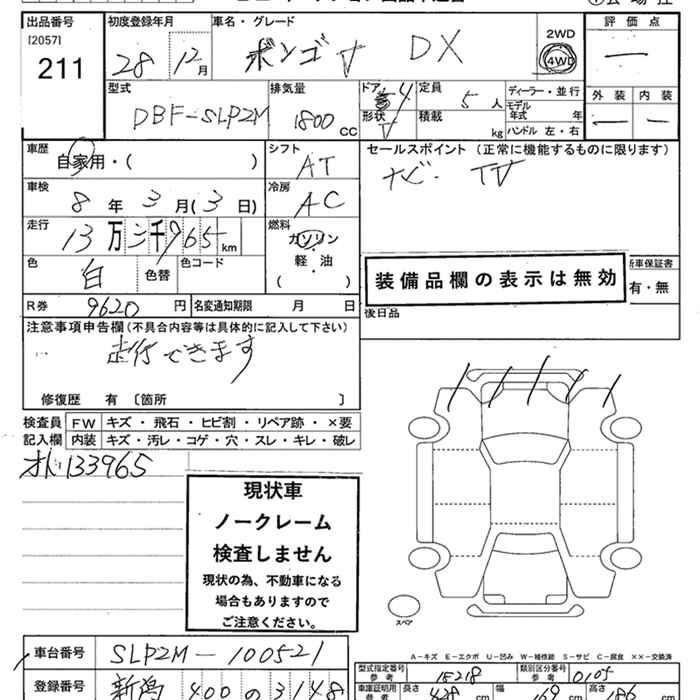 出品番号 初度登録年月 車名・グレード 評価点
[2057]
211 28 12月 ボンゴV DX 2WD 4WD
型式 排気量 ドア 定員 ディーラー・並行 外装 内装
DBF-SLP2M 1800 CC 4 5人 モデル年式 年
形状 V 積載 kg ハンドル 左・右
車歴 シフト セールスポイント (正常に機能するものに限ります)
自家用・( ) AT ナビ・TV
車検 冷房
8年3月(3日) AC
走行 燃料
13万三千965km ガソリン
軽・油
( )
色 白 色替 色コード
装備品欄の表示は無効
新車保証書
有・無
R券 9620円 名変通知期限 月 日 後日品
注意事項申告欄(不具合内容等は具体的に記入して下さい)
走行できます
修復歴 有 〔箇所 〕
検査員 FW キズ・飛石・ヒビ割・リペア跡・×要
記入欄 内装 キズ・汚レ・コゲ・穴・スレ・キレ・破レ
オド133965
現状車
ノークレーム
検査しません
現状の為、不動車になる
場合もありますので
ご注意ください。
スペア
A-キズ E-エクボ U-凹み W-補修跡 S-サビ C-腐食 ××-交換済
車台番号 SLP2M-100521
型式指定番号 参考 18218 類別区分番号 参考 0105
登録番号 新潟 400 の 3148
車庫証明用 参考 長さ 428 cm 幅 169 cm 高さ 186 cm